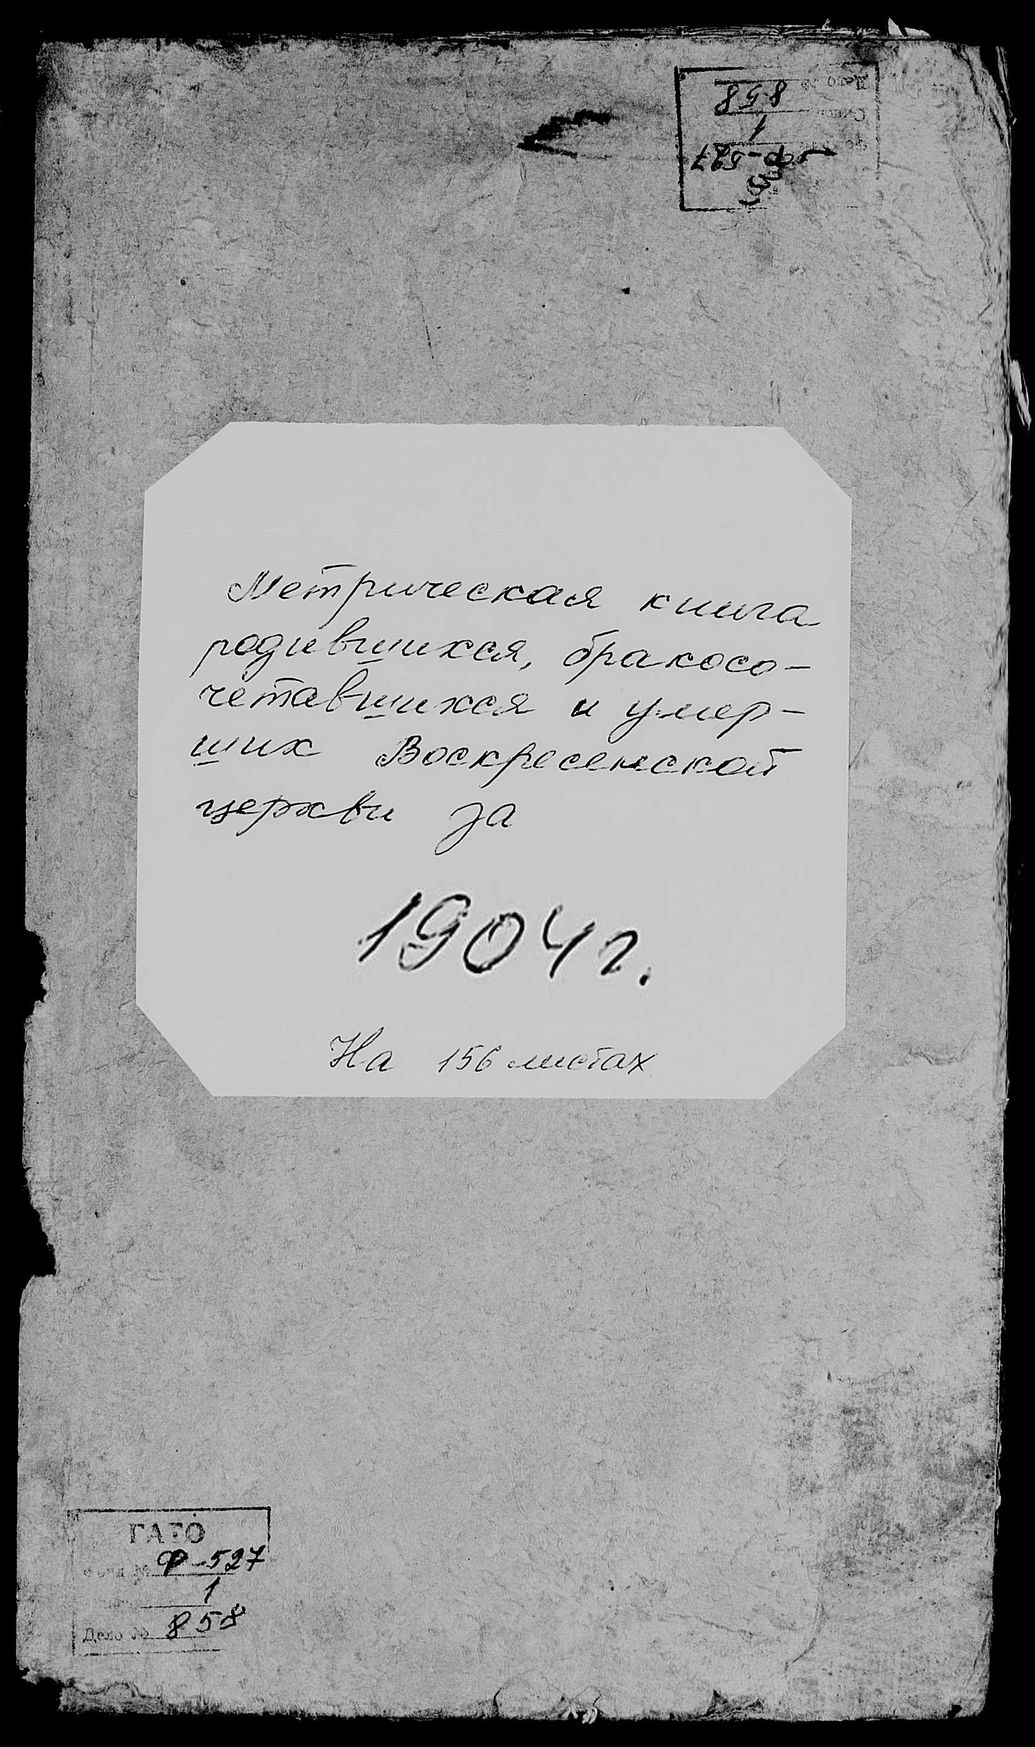 858
1
Ф-527
Метрическая книга
родившихся, бракосо-
четавшихся и умер-
ших Воскресенской
церкви за
1904 г.
На 156 листах
ГАТО
Ф-527
1
Дело № 858